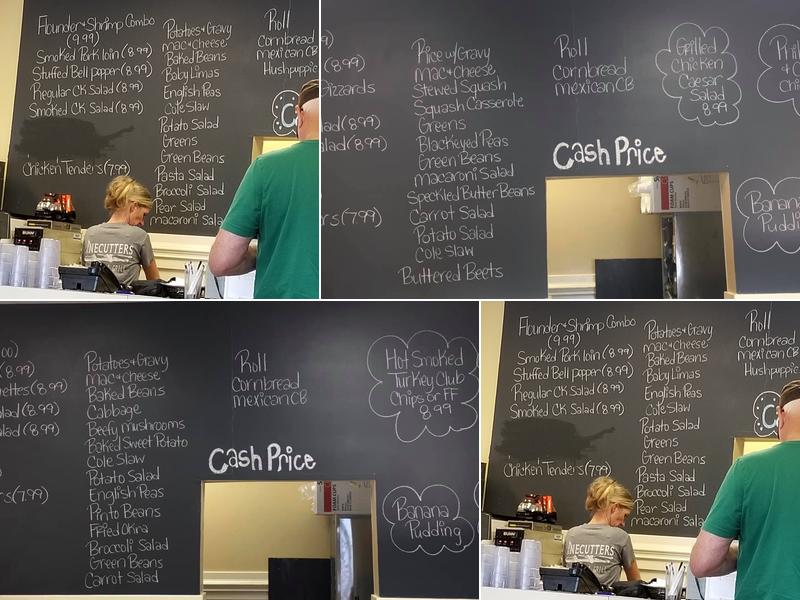 Flounder & Shrimp Combo
(9.99)
Smoked Pork loin (8.99)
Stuffed Bell pepper (8.99)
Regular CK Salad (8.99)
Smoked CK Salad (8.99)
Chicken Tenders (7.99)
Potatoes & Gravy
mac & cheese
Baked Beans
Baby Limas
English Peas
Cole Slaw
Potato Salad
Greens
Green Beans
Pasta Salad
Broccoli Salad
Pear Salad
macaroni Sala
Roll
Cornbread
mexican CB
Hushpuppie
C
BUNN
INECUTTERS
GRILL
(8.99)
Gizzards
ad (8.99)
alad (8.99)
rs (7.99)
Rice w/Gravy
mac & cheese
Stewed Squash
Squash Casserole
Greens
Blackeyed Peas
Green Beans
macaroni Salad
Speckled Butter Beans
Carrot Salad
Potato Salad
Cole Slaw
Buttered Beets
Roll
Cornbread
mexican CB
Cash Price
Grilled
Chicken
Caesar
Salad
8.99
Phil
& C
Chi
Banana
Puddi
00)
8.99)
ettes (8.99)
alad (8.99)
alad (8.99)
rs (7.99)
Potatoes & Gravy
mac & cheese
Baked Beans
Cabbage
Beefy mushrooms
Baked Sweet Potato
Cole Slaw
Potato Salad
English Peas
Pinto Beans
Fried Okra
Broccoli Salad
Green Beans
Carrot Salad
Roll
Cornbread
mexican CB
Cash Price
Hot Smoked
Turkey Club
Chips or FF
8.99
Banana
Pudding
Flounder & Shrimp Combo
(9.99)
Smoked Pork loin (8.99)
Stuffed Bell pepper (8.99)
Regular CK Salad (8.99)
Smoked CK Salad (8.99)
Chicken Tenders (7.99)
Potatoes & Gravy
mac & cheese
Baked Beans
Baby Limas
English Peas
Cole Slaw
Potato Salad
Greens
Green Beans
Pasta Salad
Broccoli Salad
Pear Salad
macaroni Sala
Roll
Cornbread
mexican C
Hushpuppie
C
BUNN
INECUTTERS
GRILL